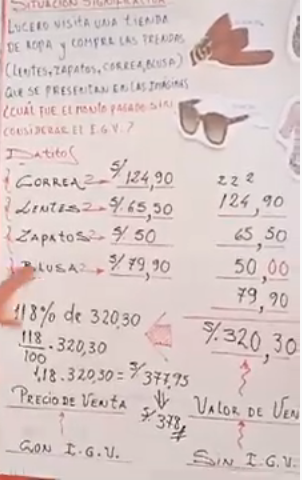 SITUACIÓN SIGNIFICATIVA
LUCERO VISITA UNA TIENDA
DE ROPA Y COMPRA LAS PRENDAS
(LENTES, ZAPATOS, CORREA, BLUSA)
QUE SE PRESENTAN EN LAS IMÁGENES
¿CUÁL FUE EL MONTO PAGADO SIN
CONSIDERAR EL I.G.V.?
DATITOS
CORREA → S/. 124,90
LENTES → S/. 65,50
ZAPATOS → S/. 50
BLUSA → S/. 79,90
2 2 2
124,90
65,50
50,00
79,90
S/. 320,30
118% de 320,30
118/100 · 320,30
1,18 . 320,30 = S/ 377,95
S/. 378
PRECIO DE VENTA
CON I.G.V.
VALOR DE VEN
SIN I.G.V.